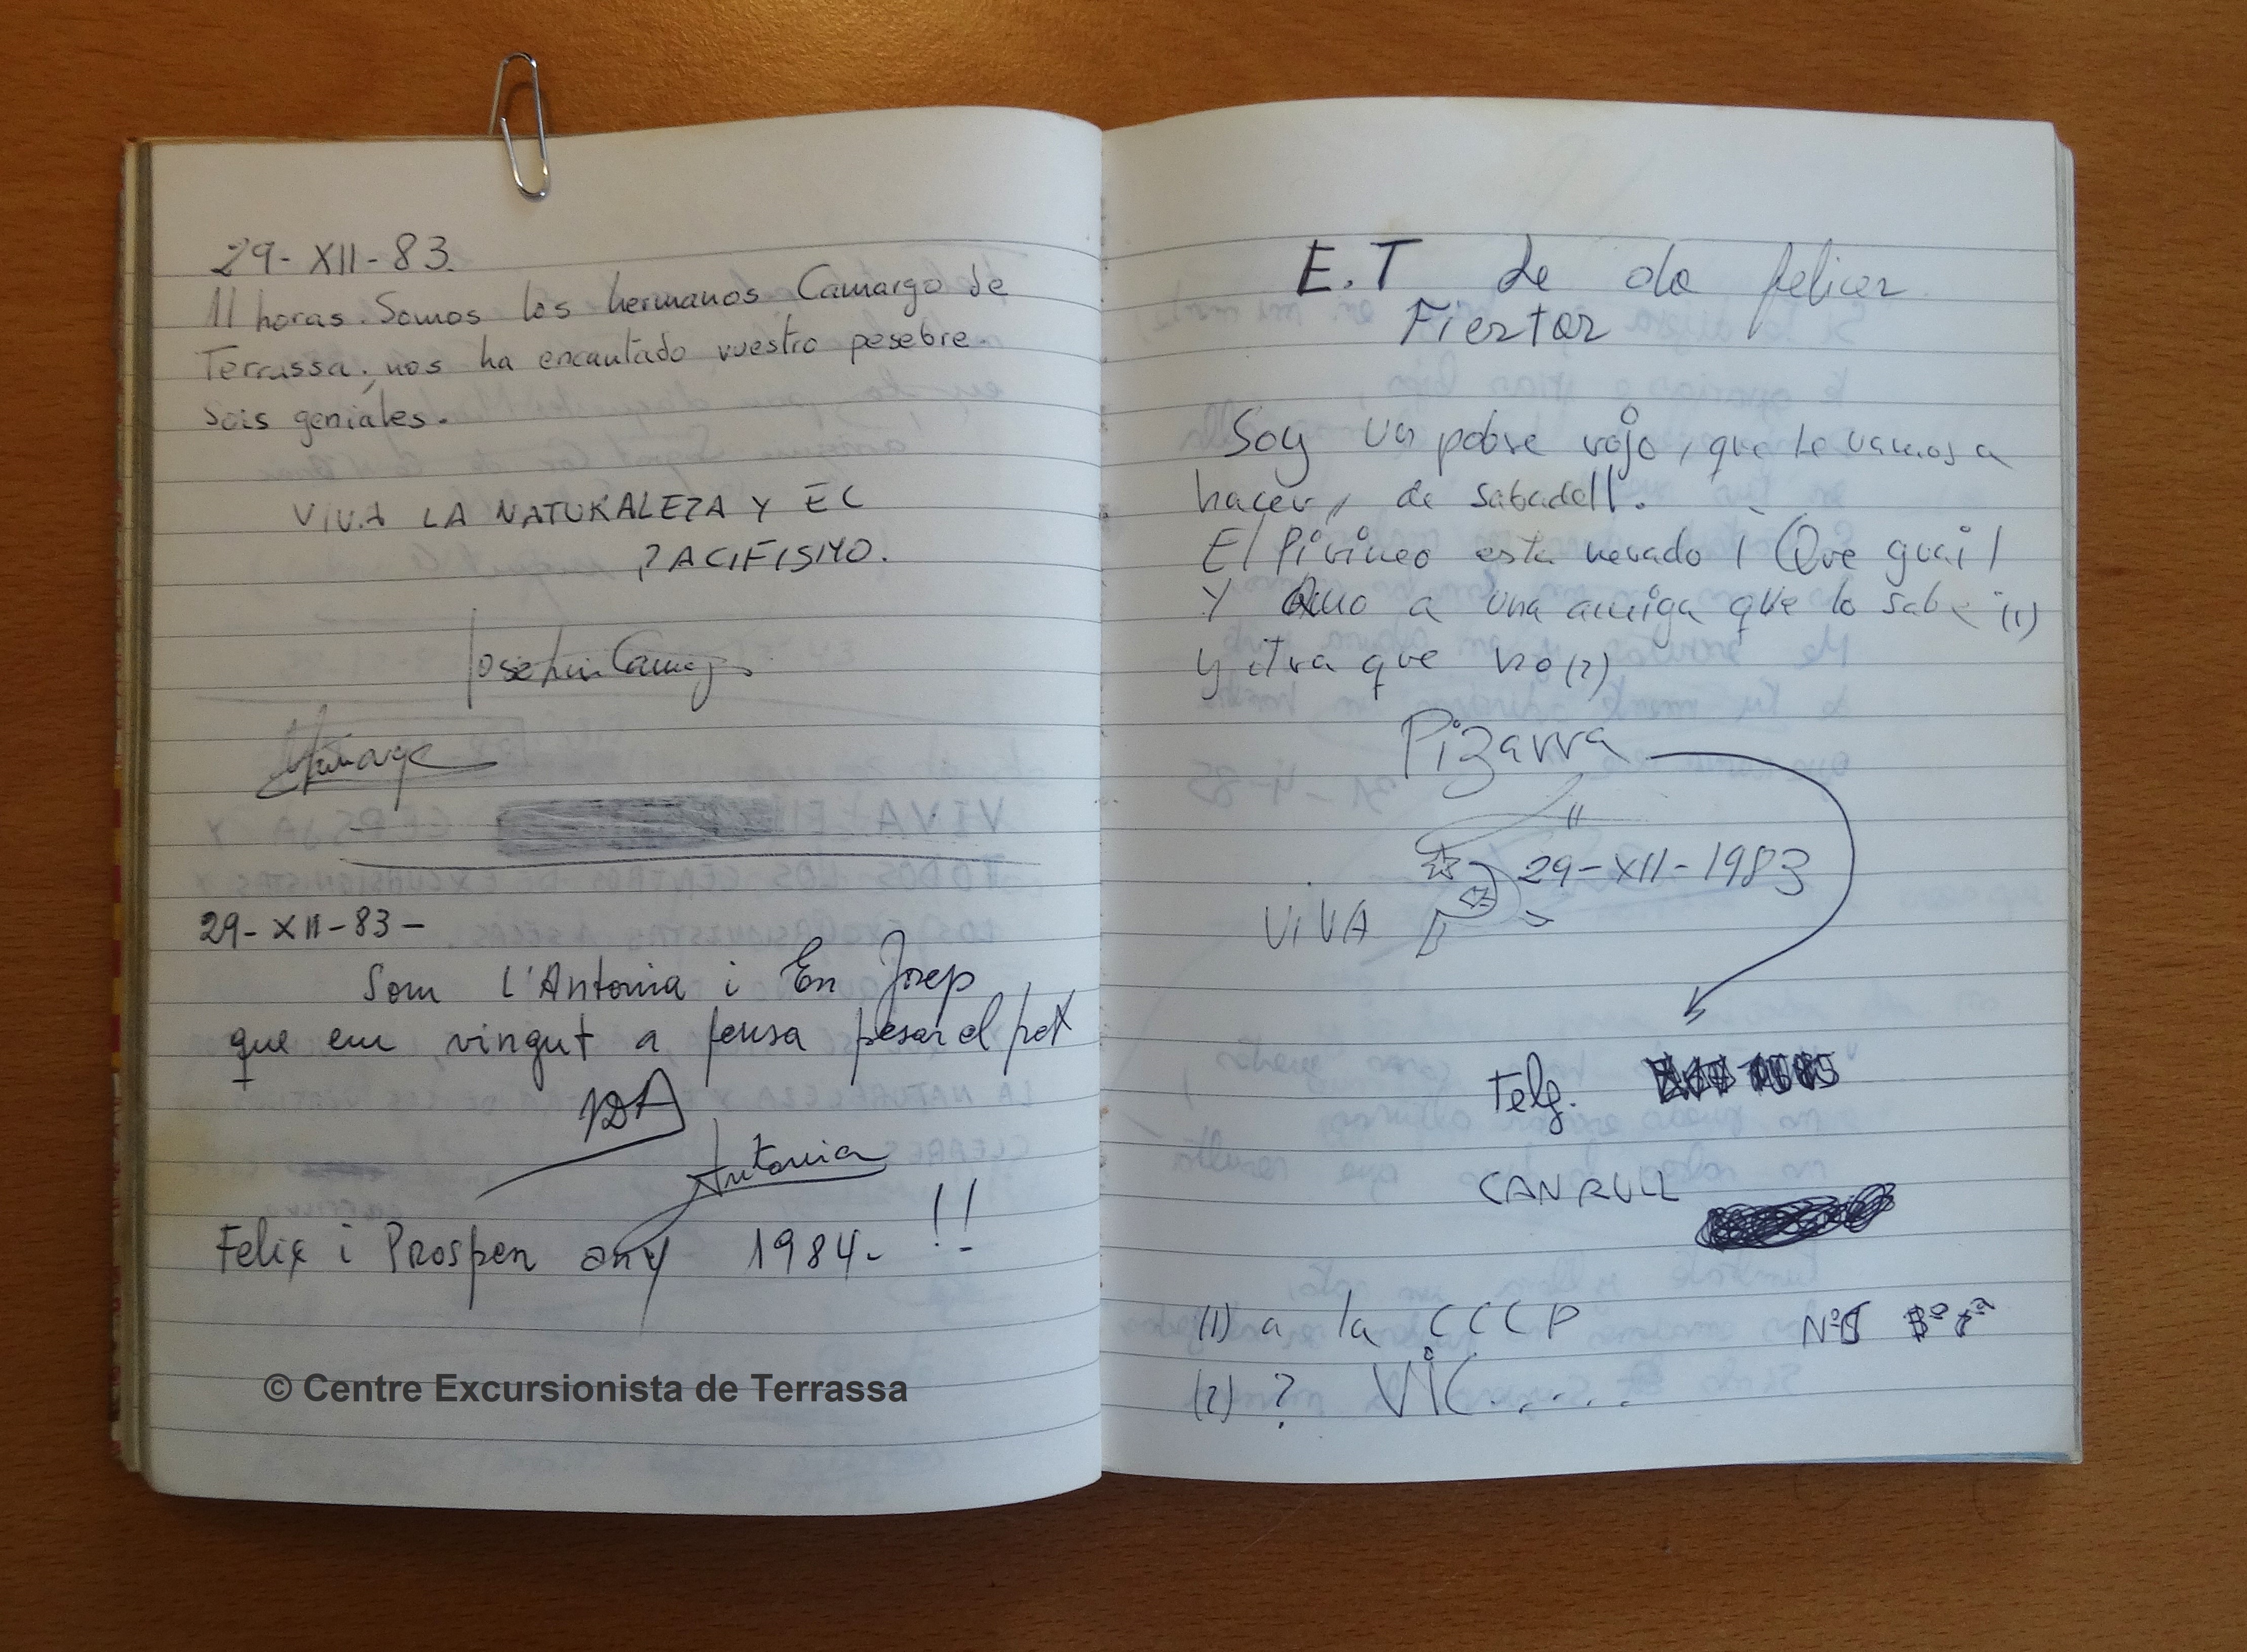 29-XII-83.
11 horas. Somos los hermanos Camargo de
Terrassa; nos ha encantado vuestro pesebre.
Sois geniales.
VIVA LA NATURALEZA Y EL
PACIFISMO.
29-XII-83-
Som L'Antonia i En Josep
que em vingut a fensa pesar el pet
Antonia
Felix i Prosper any 1984- !!
© Centre Excursionista de Terrassa
E.T de da felicer
Fiertar
Soy un pobre rojo, que le vamos a
hacer, de sabadell.
El Pirineo esta nevado ¡Que guai!
Y Amo a una amiga que lo sabe (1)
y otra que no (2)
Pizarra
29-XII-1983
VIVA
Telf.
CAN RULL
(1) a la CCCP
(2) ? VIC.....